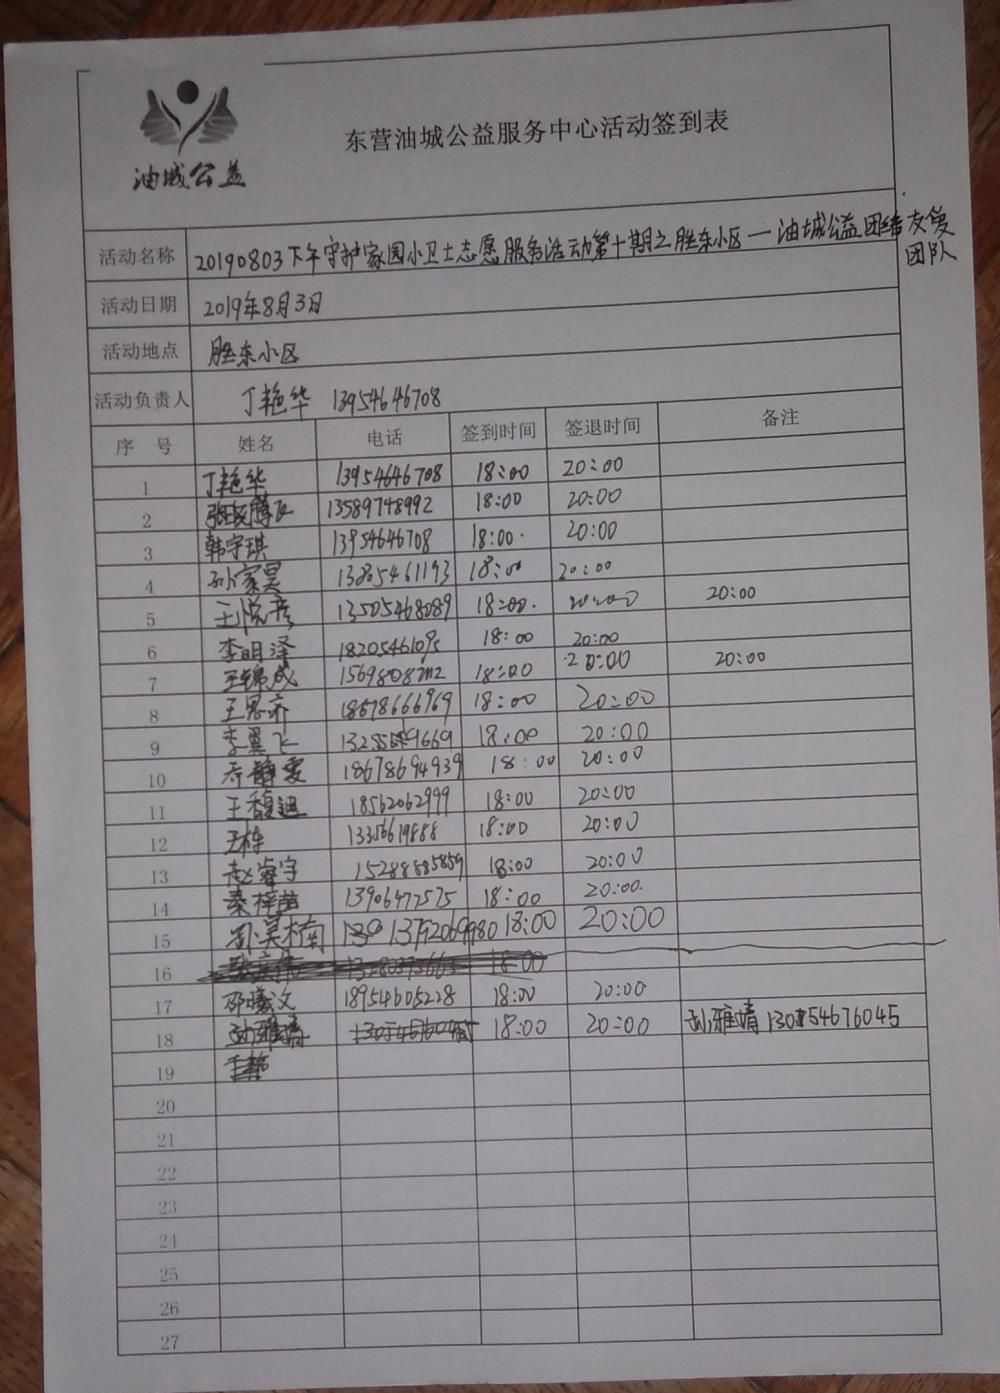 油城公益
东营油城公益服务中心活动签到表
活动名称 20190803下午守护家园小卫士志愿服务活动第十期之胜东小区—油城公益团结友爱
团队
活动日期 2019年8月3日
活动地点 胜东小区
活动负责人 丁艳华 13954646708
序 号 姓名 电话 签到时间 签退时间 备注
1 丁艳华 13954646708 18:00 20:00
2 13589748992 18:00 20:00
3 韩宇琪 13954646708 18:00 20:00
4 孙家昊 13805461193 18:00 20:00
5 王悦彦 13505468089 18:00 20:00 20:00
6 李明泽 18205461095 18:00 20:00
7 王锦成 18:00 20:00 20:00
8 王思齐 18678666969 18:00 20:00
9 李翼飞 18:00 20:00
10 乔静雯 18678694939 18:00 20:00
11 王馥迪 18562062999 18:00 20:00
12 王梓 13356619888 18:00 20:00
13 赵睿宇 15288885859 18:00 20:00
14 秦梓茜 13906477575 18:00 20:00
15 孙昊楠 13792069980 18:00 20:00
16 18:00
17 邵曦文 18954605228 18:00 20:00
18 孙雅婧 18:00 20:00 孙雅婧 13054676045
19
20
21
22
23
24
25
26
27